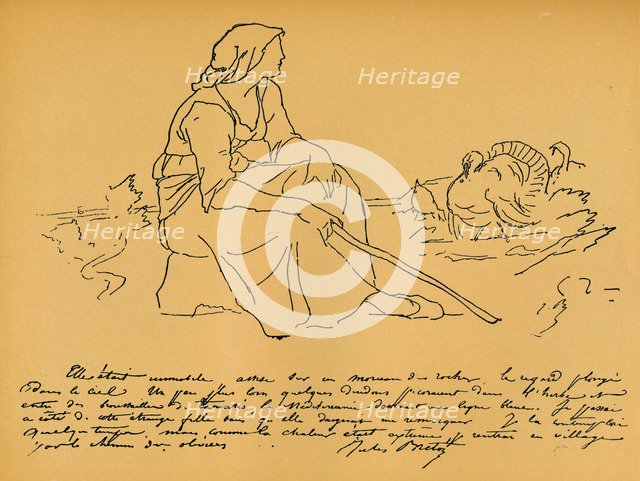 Heritage Heritage
Heritage Heritage Heritage
Heritage Heritage
Elle était immobile assise sur un morceau de rocher le regard plongé
dans le ciel Un peu plus loin quelques dindons picoraient dans l'herbe et
entre des broussailles la Méditerranée ligne bleue. Je passai
à côté de cette étrange fille sans qu'elle daignat me remarquer Je la contemplai
quelque temps, mais comme la chaleur était extreme je rentrai au village
par le chemin des oliviers Jules Breton